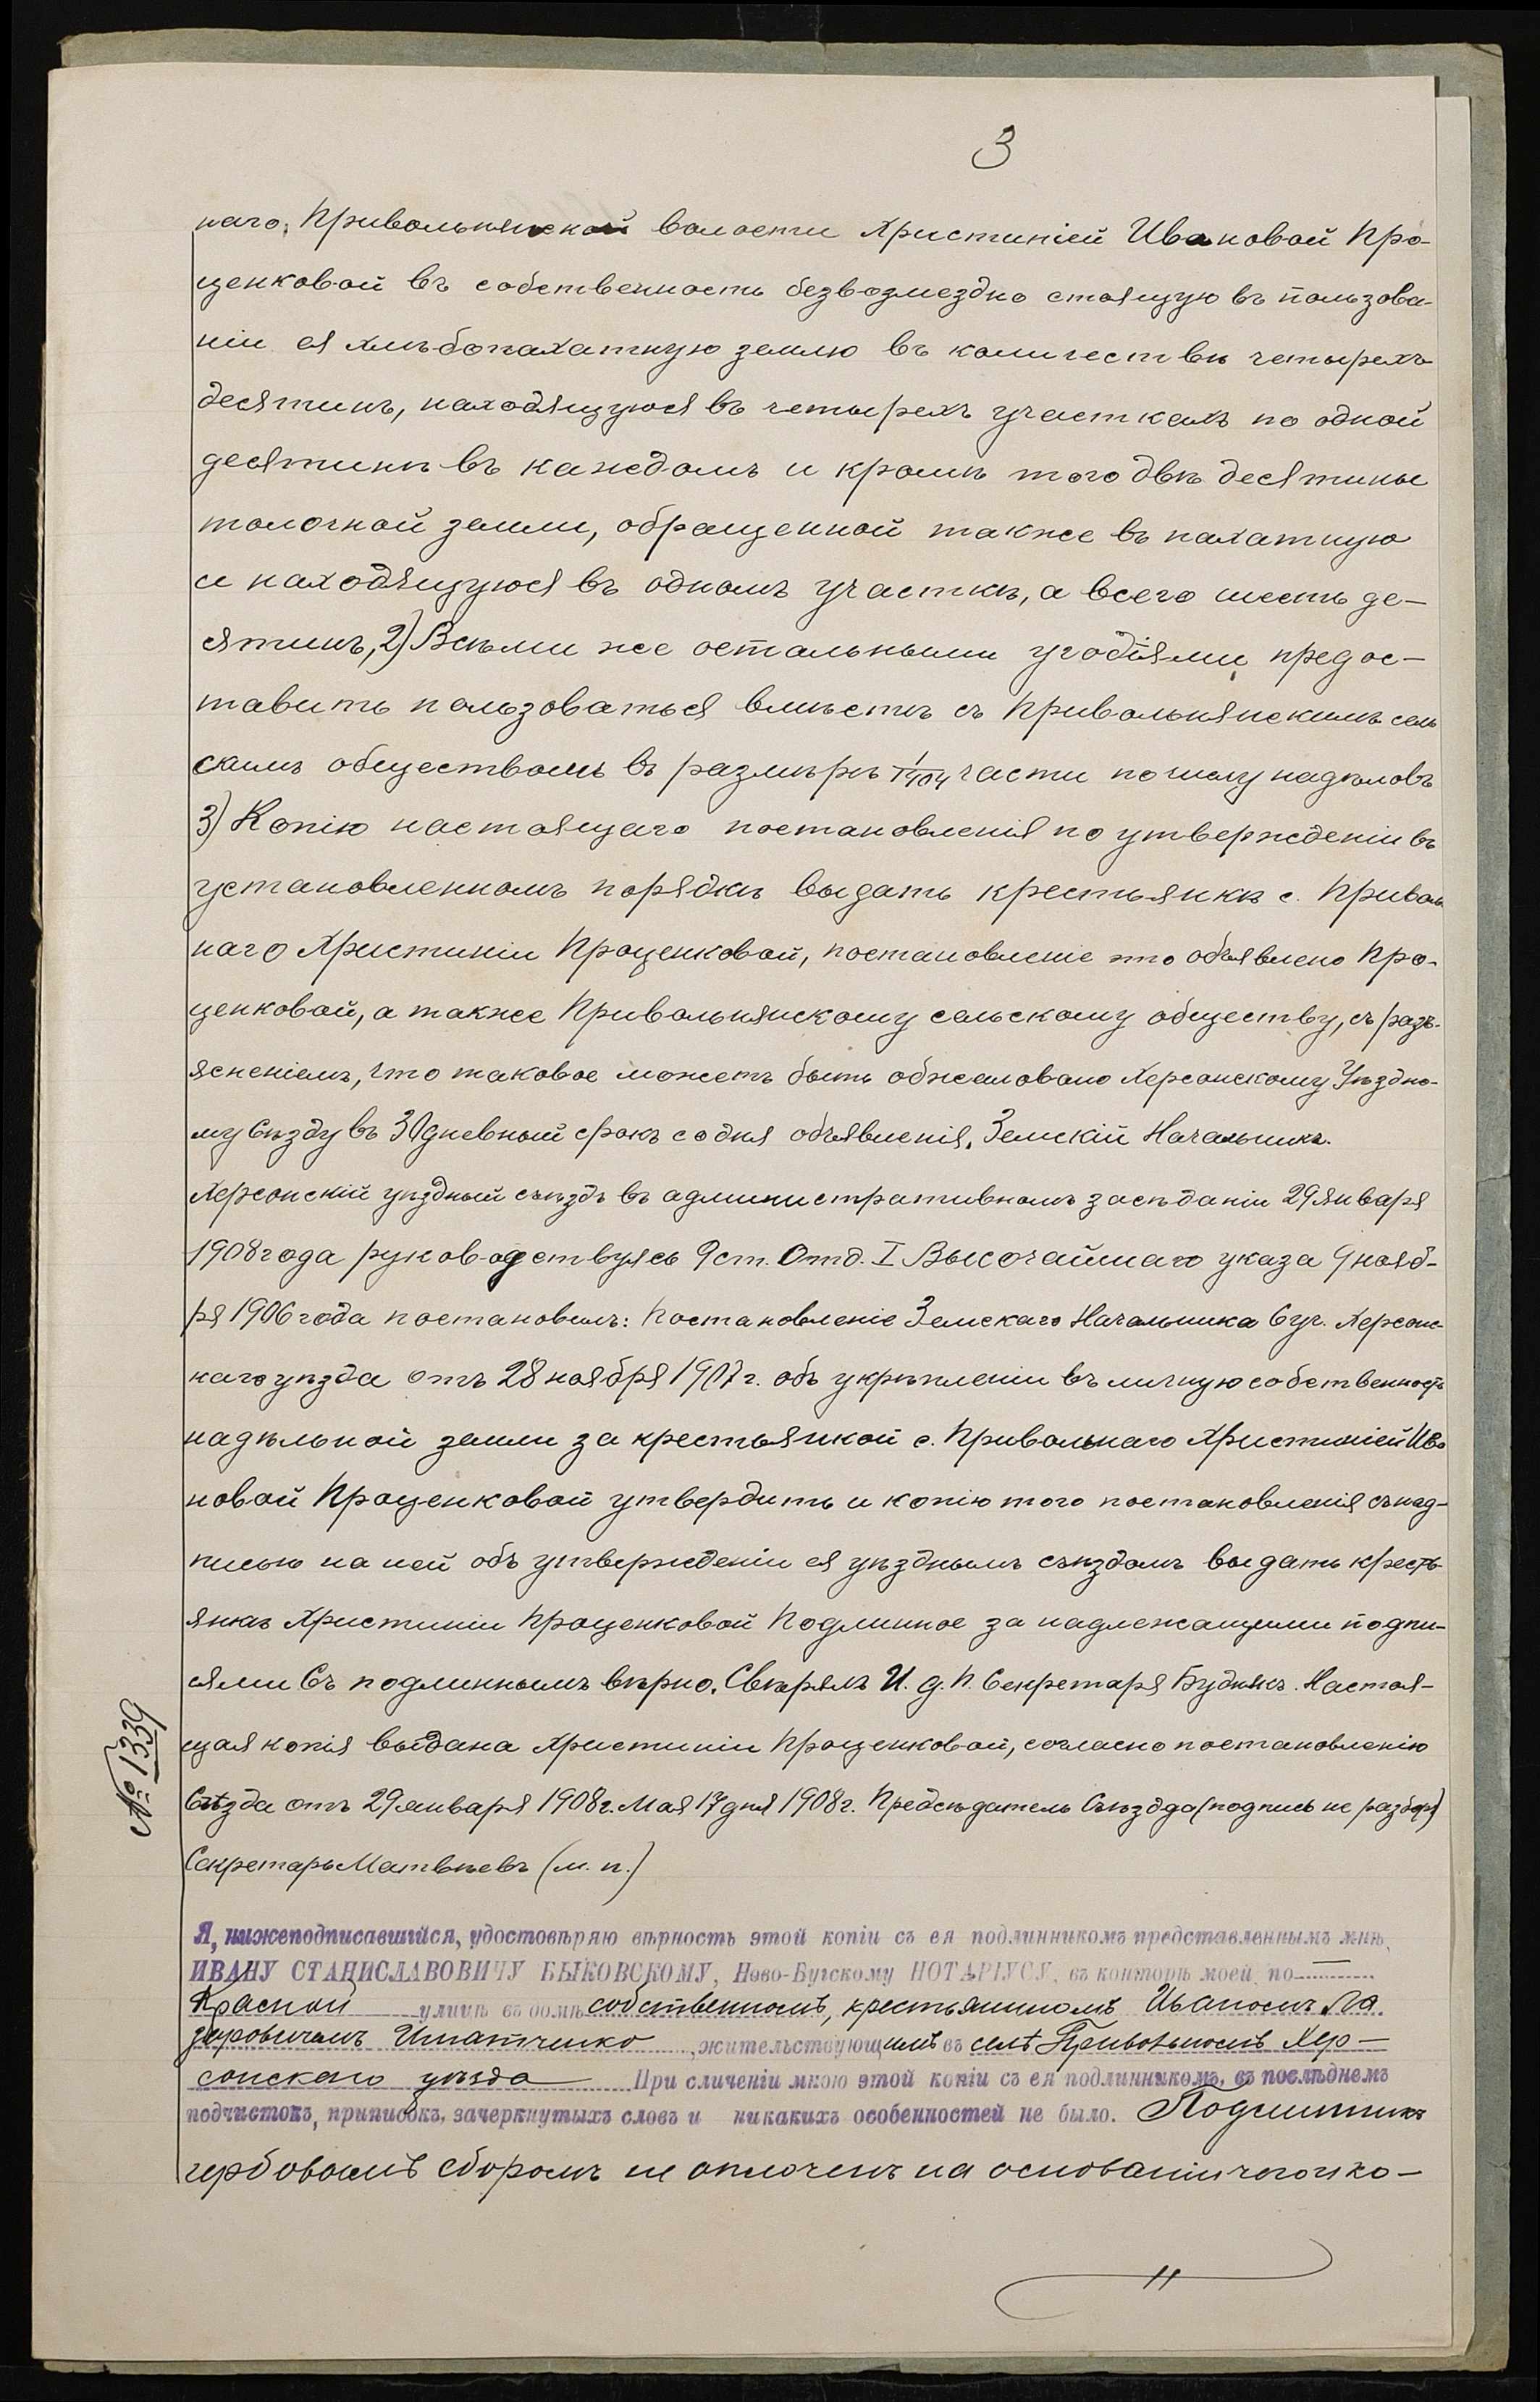 3
наго, Привольнянской волости Христиніей Ивановой Про-
ценковой въ собственность безвозмездно стоящую въ пользова-
ніи ея хлѣбопахатную землю въ количествѣ четырехъ
десятинъ, находящуюся въ четырехъ участкахъ по одной
десятинѣ въ каждомъ и кромѣ того двѣ десятины
толочной земли, обращенной также въ пахатную
и находящуюся въ одномъ участкѣ, а всего шесть де-
сятинъ, 2) Всѣми же остальными угодіями предос-
тавить пользоваться вмѣстѣ съ Привольнянскимъ сель
скимъ обществомъ въ размѣрѣ части по числу надѣловъ
3) Копію настоящаго постановленія по утвержденіи въ
установленномъ порядкѣ выдать крестьянкѣ с. Приволь
наго Христиніи Проценковой, постановленіе это объявлено Про-
ценковой, а также Привольнянскому сельскому обществу, съ разъ-
ясненіемъ, что таковое можетъ быть обжаловано Херсонскому Уѣздно-
му Съѣзду въ 30 дневный срокъ со дня объявленія. Земскій Начальникъ.
Херсонскій уѣздный съѣздъ въ административномъ засѣданіи 29 Января
1908 года руководствуясь 9 ст. Отд. I Высочайшаго указа 9 нояб-
ря 1906 года постановилъ: Постановленіе Земскаго Начальника 6 уч. Херсонс-
каго уѣзда отъ 28 ноября 1907 г. объ укрѣпленіи въ личную собственность
надѣльной земли за крестьянкой с. Привольнаго Христиніей Ива
новой Проценковой утвердить и копію того постановленія съ над-
писью на ней объ утвержденіи ея уѣзднымъ съѣздомъ выдать кресть
янкѣ Христиніи Проценковой Подлинное за надлежащими подпи-
сями Съ подлиннымъ вѣрно. Свѣрялъ И. д. П. Секретаря Будякъ. Настоя-
щая копія выдана Христиніи Проценковой, согласно постановленію
№ 1339
Съѣзда отъ 29 января 1908 г. Мая 17 дня 1908 г. Предсѣдатель Съѣзда (подпись не разбор)
Секретарь Матвѣевъ (м. п.)
Я, нижеподписавшійся, удостовѣряю вѣрность этой копіи съ ея подлинникомъ представленнымъ мнѣ,
ИВАНУ СТАНИСЛАВОВИЧУ БЫКОВСКОМУ, Ново-Бугскому НОТАРІУСУ, въ конторѣ моей, по
Красной улицѣ въ домѣ собственномъ, крестьяниномъ Иваномъ Ла
заровичемъ Игнатченко, жительствующимъ въ селѣ Привольномъ Хер-
сонскаго уѣзда При сличеніи мною этой копіи съ ея подлинникомъ, въ послѣднемъ
подчистокъ, приписокъ, зачеркнутыхъ словъ и никакихъ особенностей не было. Подлинникъ
гербовымъ сборомъ не оплоченъ на основаніи чего и ко-